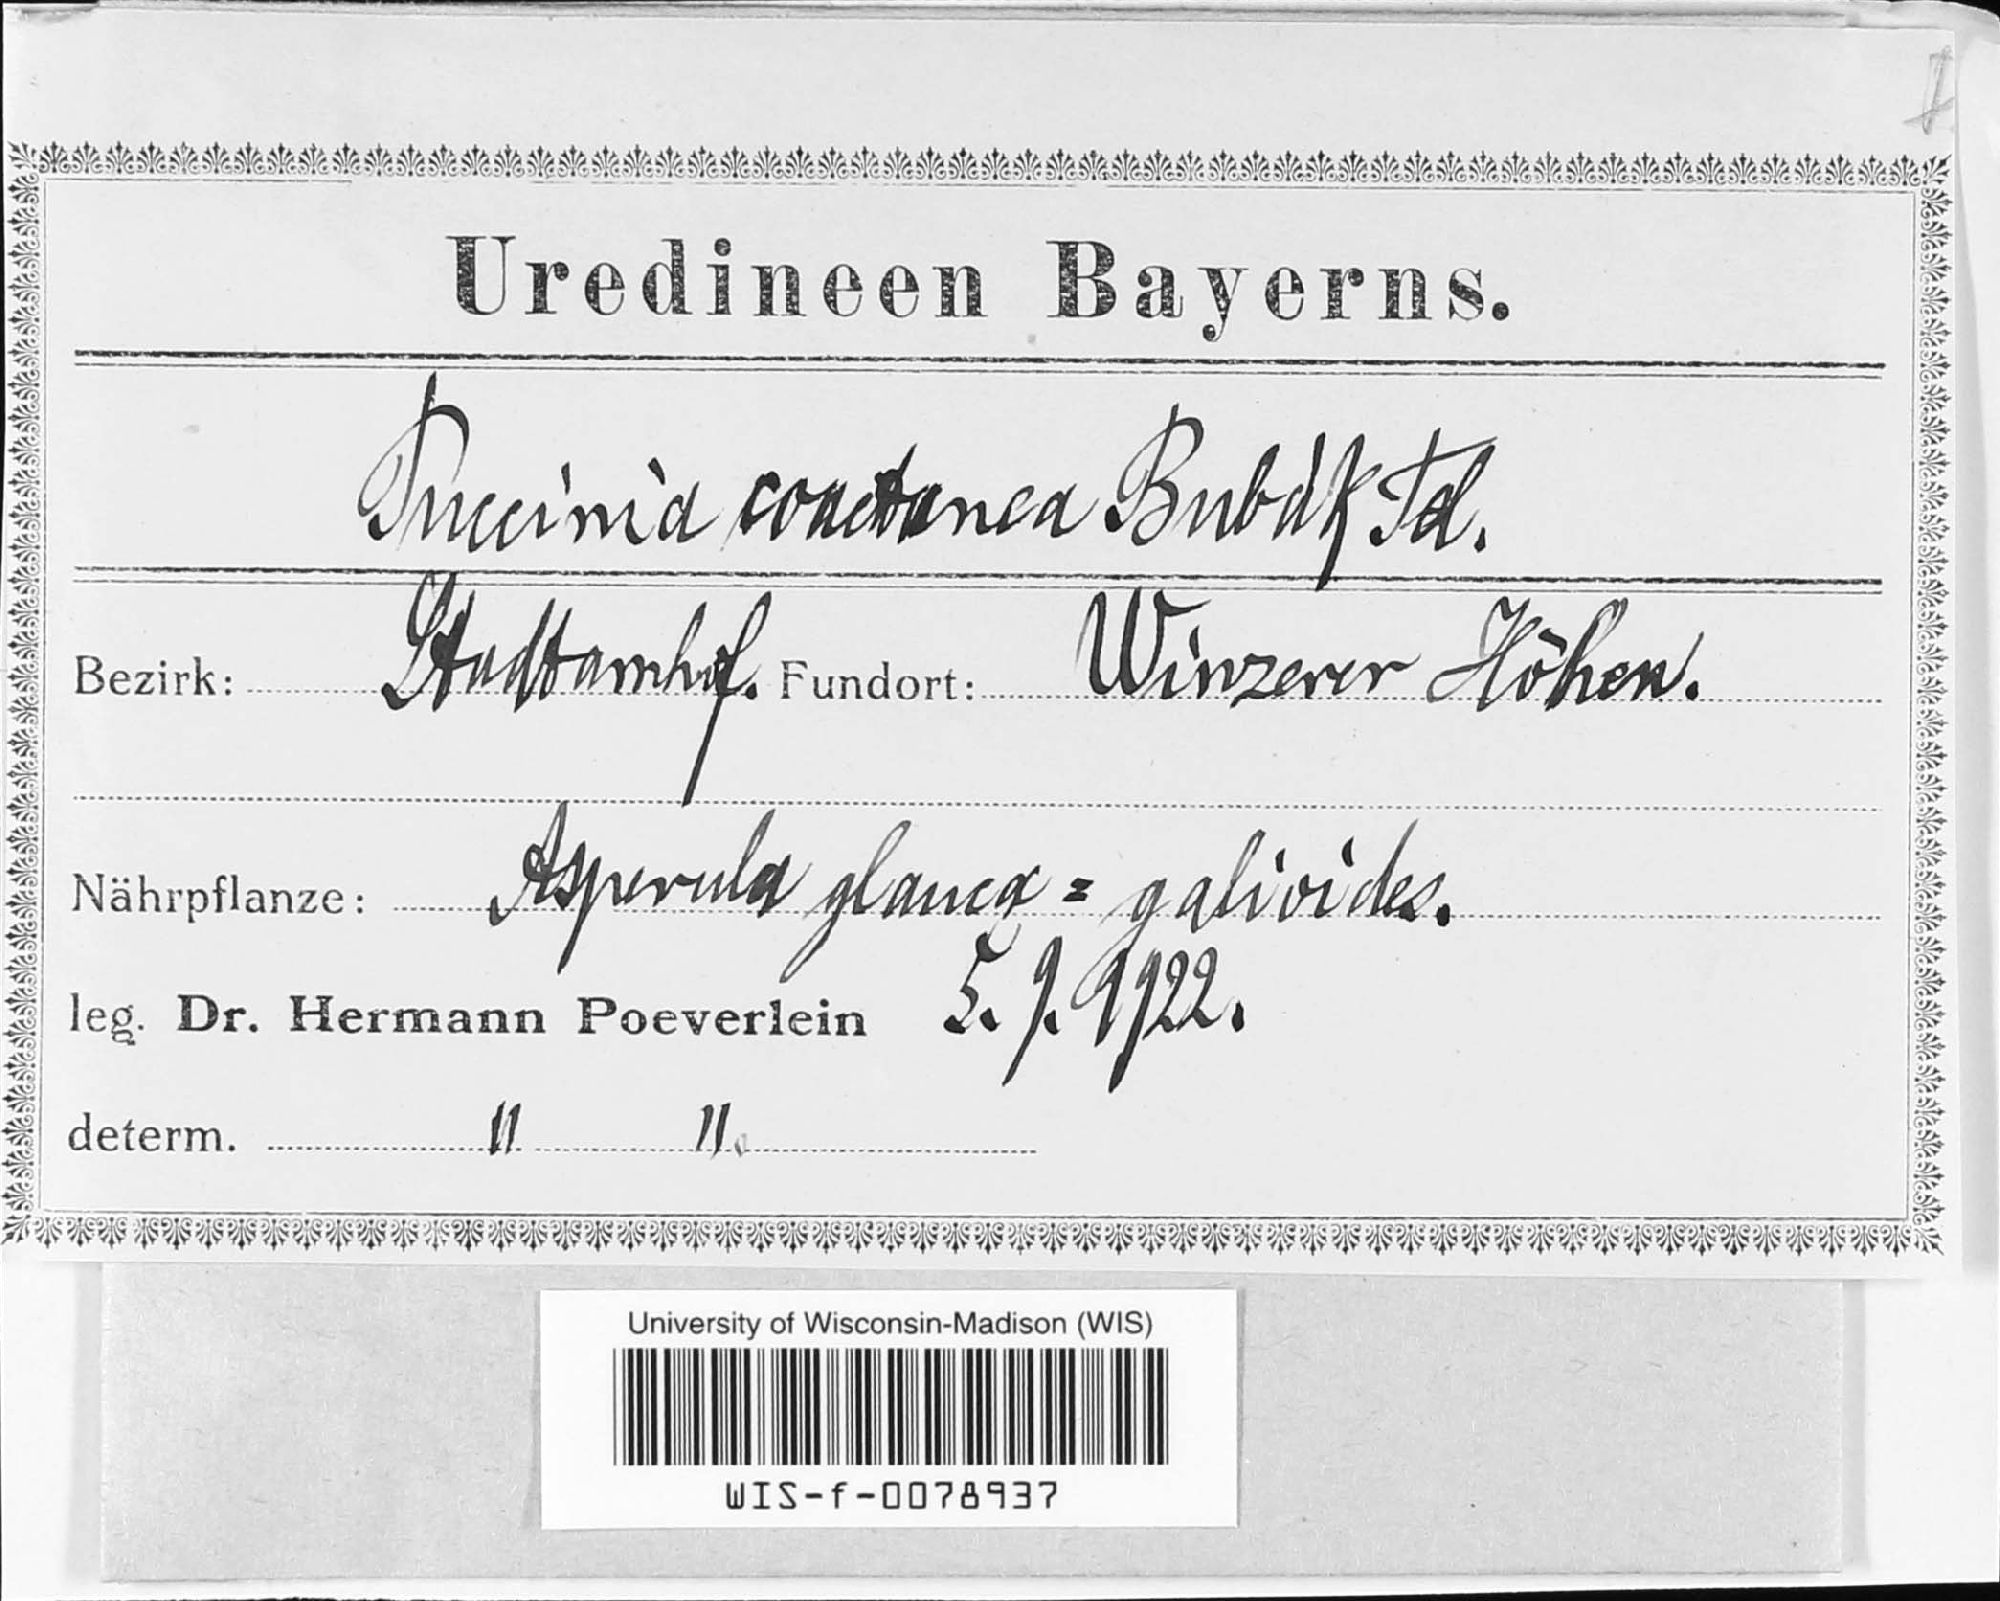 Uredineen Bayerns.
Puccinia coactanea Bubák Td.
Bezirk: Stadtamhof. Fundort: Winzerer Höhen.
Nährpflanze: Asperula glauca = galioides.
leg. Dr. Hermann Poeverlein 5. 9. 1922.
determ. " ".
University of Wisconsin-Madison (WIS)
WIS-f-0078937